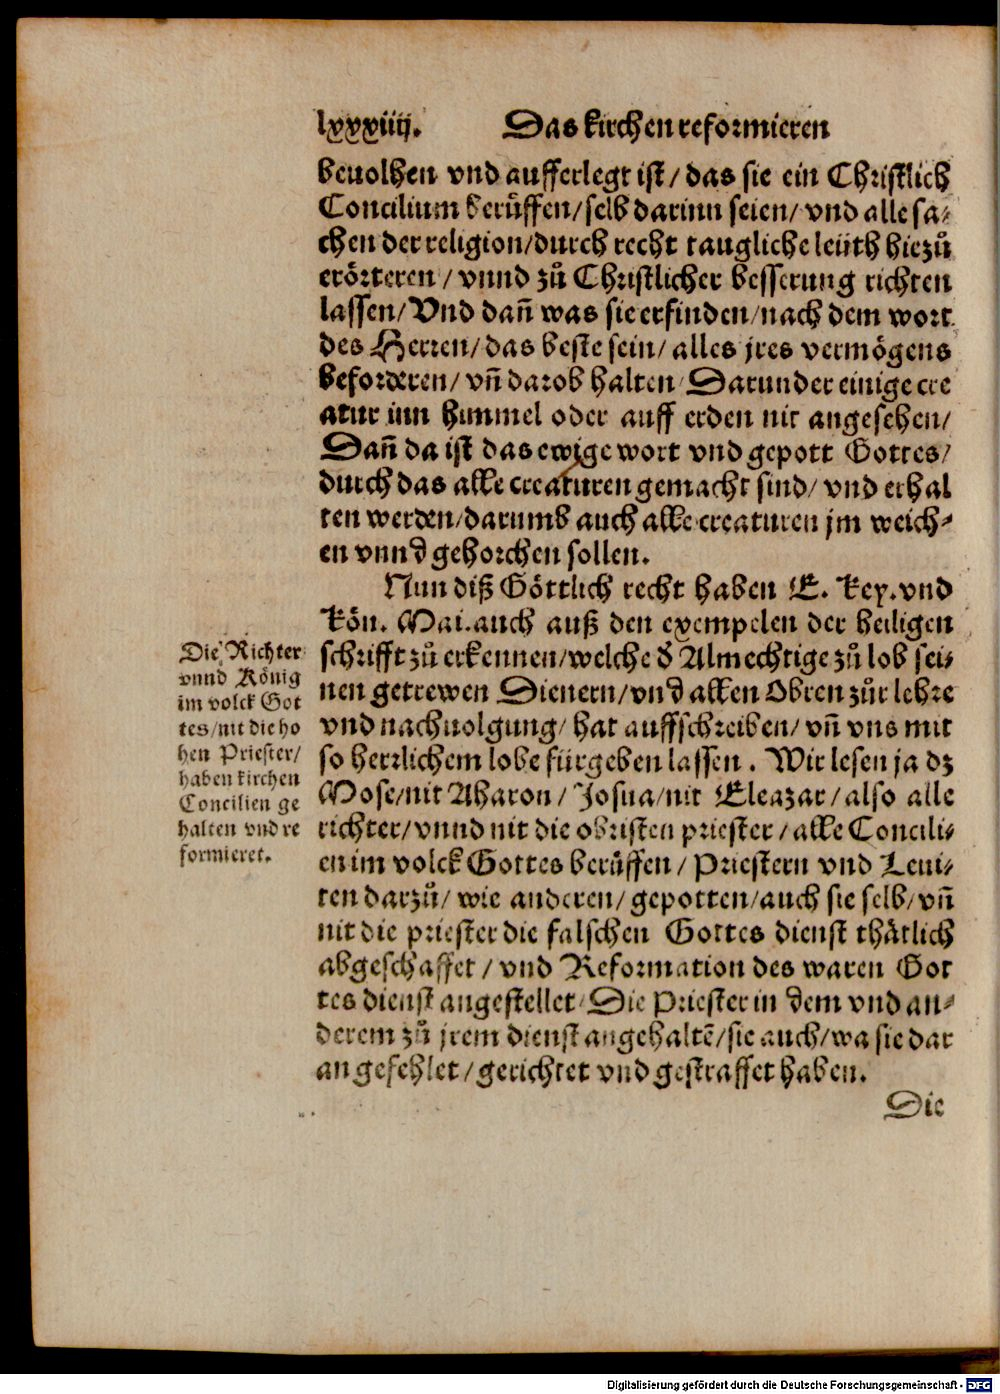 lxxxiiij. Das kirchen reformieren
beuolhen vnd aufferlegt ist/ das sie ein Christlich
Concilium berůffen/selb darinn seien/ vnd alle sa-
chen der religion/durch recht taugliche leüth hiezů
erörteren / vnnd zů Christlicher besserung richten
lassen/ Vnd dañ was sie erfinden/nach dem wort
des Herren/das beste sein/ alles jres vermögens
beforderen/ vñ darob halten/ Darunder einige cre
atur inn himmel oder auff erden nit angesehen/
Dañ da ist das ewige wort vnd gepott Gottes/
durch das alle creaturen gemacht sind/ vnd erhal
ten werden/darumb auch alle creaturen jm weich-
en vnnd gehorchen sollen.
Nun diß Göttlich recht haben E. Key. vnd
Kön. Mai. auch auß den exempelen der heiligen
schrifft zů erkennen/welche d Almechtige zů lob sei-
nen getrewen Dienern/vnd allen Obren zůr lehre
vnd nachuolgung/ hat auffschreiben/ vñ vns mit
so herrlichem lobe fürgeben lassen. Wir lesen ja dz
Mose/nit Aharon/ Josua/nit Eleazar/also alle
richter/vnnd nit die obristen priester/alle Concili-
en im volck Gottes berůffen/ Priestern vnd Leui-
ten darzů/ wie anderen/ gepotten/auch sie selb/ vñ
nit die priester die falschen Gottes dienst thätlich
abgeschaffet/ vnd Reformation des waren Got
tes dienst angestellet/ Die Priester in dem vnd an-
derem zů jrem dienst angehaltē/sie auch/wa sie dar
an gefehlet/gerichtet vnd gestraffet haben.
Die
Die Richter
vnnd König
im volck Got
tes/nit die ho
hen Priester/
haben kirchen
Concilien ge
halten vnd re
formieret.
Digitalisierung gefördert durch die Deutsche Forschungsgemeinschaft - DFG